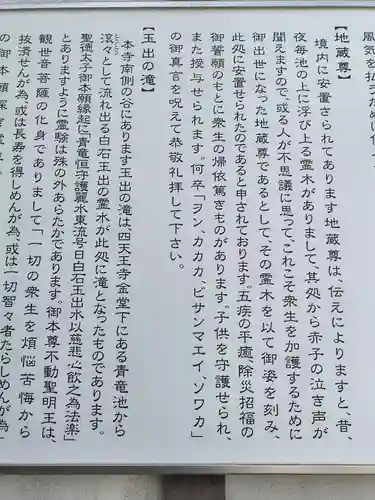 風気を払うために
【地蔵尊】
境内に安置されてあります地蔵尊は、伝えによりますと、昔、
夜毎池の上に浮び上る霊木がありまして、其処から赤子の泣き声が
聞えますので、或る人が不思議に思って、これこそ衆生を加護するために
御出世になった地蔵尊であるとして、その霊木を以て御姿を刻み、
此処に安置せられたのであると申されております。五疾の平癒、除災招福の
御誓願のもとに衆生の帰依篤きものがあります。子供を守護せられ、
また授与せられます。何卒「ヲン、カカカ、ビサンマエイ、ソワカ」
の御真言を呪えて恭敬礼拝して下さい。
【玉出の滝】
本寺南側の谷にあります玉出の滝は、四天王寺金堂下にある青竜池から
滾々として流れ出る白石玉出の霊水が此処に滝となったものであります。
聖徳太子御本願縁起に『青竜恒守護麗水東流号日白石玉出水以慈悲心飲之為法楽』
とありますように霊験は殊の外あらたかであります。御本尊不動聖明王は、
観世音菩薩の化身でありまして「一切の衆生を煩悩苦悔から
抜済せんが為、或は長寿を得しめんが為、或は一切智々者たらしめんが為」
の御本願